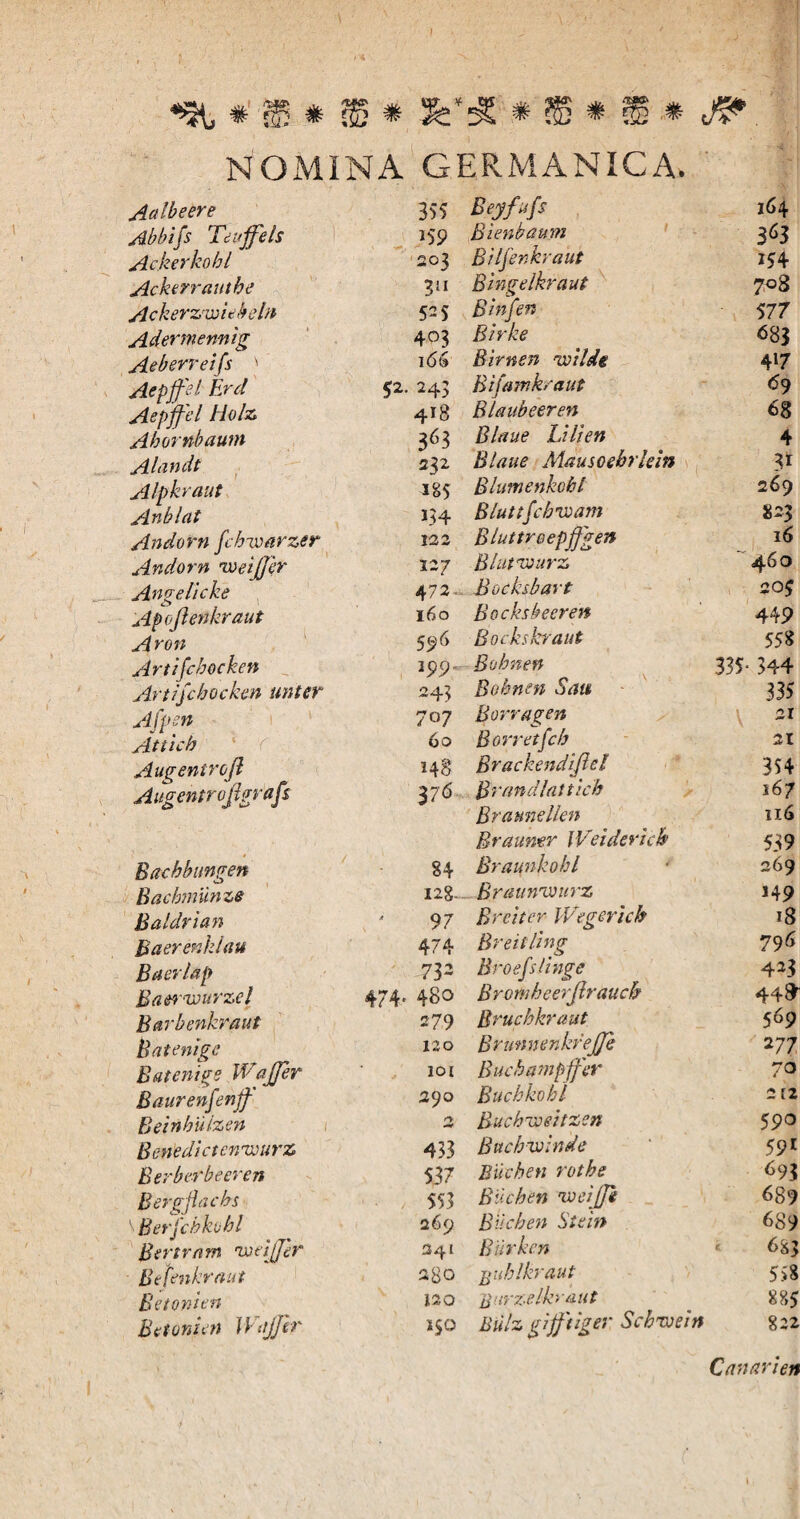 NOMINA GERMANICA.
Aalbeere 355
Abbifs Teuffels 159
Ackerkohl 203
Ackerrauthe 311
Ackerzwiebeln 525
Adermennig 403
Aeberreifs 166
Aepffel Erd 52. 243
Aepffel Holz 418
Ahornbaum 363
Alandt 232
Alpkraut 185
Anblat 134
Andorn fchwarzer 122
Andorn weiffer 127
Angelicke 472
Apoftenkraut 160
Aron 596
Artifchocken 199
Artifchocken unter 243
Afpen 707
Attich 60
Augentroft 148
Augentroftgrafs 376
Bachbungen 84
Bachmünze 128
Baldrian 97
Baerenklau 474
Baerlap 732
Baerwurzel 474. 480
Barbenkraut 279
Batenige 120
Batenige Waffer 101
Baurenfenff 290
Beinhülzen 2
Benedictenwurz 433
Berberbeeren 537
Bergflachs 553
Berfchkohl 269
Bertram weiffer 241
Befenkraut 280
Betonien 120
Betonien Waffer 150
Beyfufs 164
Bienbaum 363
Bilfenkraut 154
Bingelkraut 708
Binfen 577
Birke 683
Birnen wilde 417
Bifamkraut 69
Blaubeeren 68
Blaue Lilien 4
Blaue Mausoehrlein 31
Blumenkohl 269
Bluttfchwam 823
Bluttroepffgen 16
Blutwurz 460
Bocksbart 205
Bocksbeeren 449
Bockskraut 558
Bohnen 335. 344
Bohnen Sau 335
Borragen 21
Borretfch 21
Brackendiftel 354
Brandlattich 167
Braunellen 116
Brauner Weiderich 539
Braunkohl 269
Braunwurz 149
Breiter Wegerich 18
Breitling 796
Broefslinge 423
Bromheerftrauch 448
Bruchkraut 569
Brunnenkreffe 277
Buchampffer 70
Buchkohl 212
Buchweitzen 590
Buchwinde 591
Büchen rothe 693
Büchen weiffe 689
Büchen Stein 689
Bürken 683
Buhlkraut 558
Burzelkraut 885
Bülz gifftiger Schwein 822
Canarien